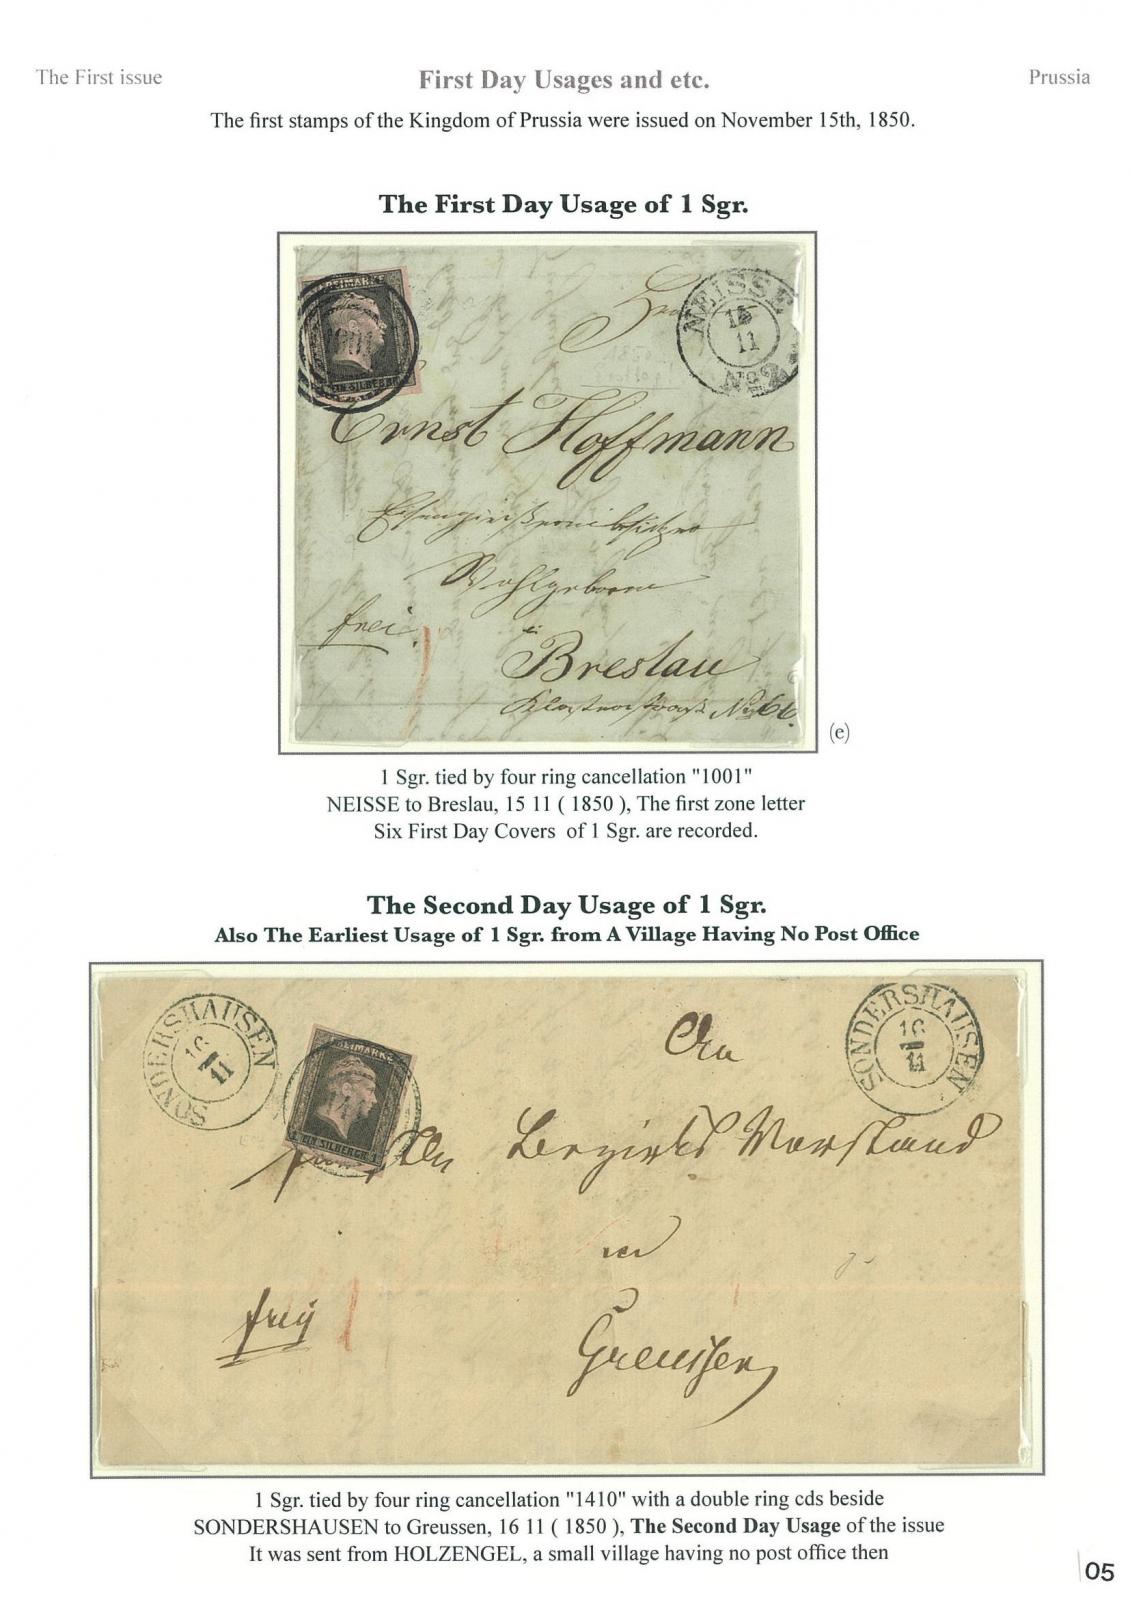 The First issue
First Day Usages and etc.
Prussia
The first stamps of the Kingdom of Prussia were issued on November 15th, 1850.
The First Day Usage of 1 Sgr.
FREIMARKE
1001
EIN SILBERGR.
NEISSE
15
11
No 2
Ernst Hoffmann
Wohlgeboren
frei.
Breslau
(e)
1 Sgr. tied by four ring cancellation "1001"
NEISSE to Breslau, 15 11 ( 1850 ), The first zone letter
Six First Day Covers of 1 Sgr. are recorded.
The Second Day Usage of 1 Sgr.
Also The Earliest Usage of 1 Sgr. from A Village Having No Post Office
SONDERSHAUSEN
16
11
FREIMARKE
1 EIN SILBERGR. 1
SONDERSHAUSEN
16
11
An
Bezirks Vorstand
in
frey
Greussen
1 Sgr. tied by four ring cancellation "1410" with a double ring cds beside
SONDERSHAUSEN to Greussen, 16 11 ( 1850 ), The Second Day Usage of the issue
It was sent from HOLZENGEL, a small village having no post office then
05